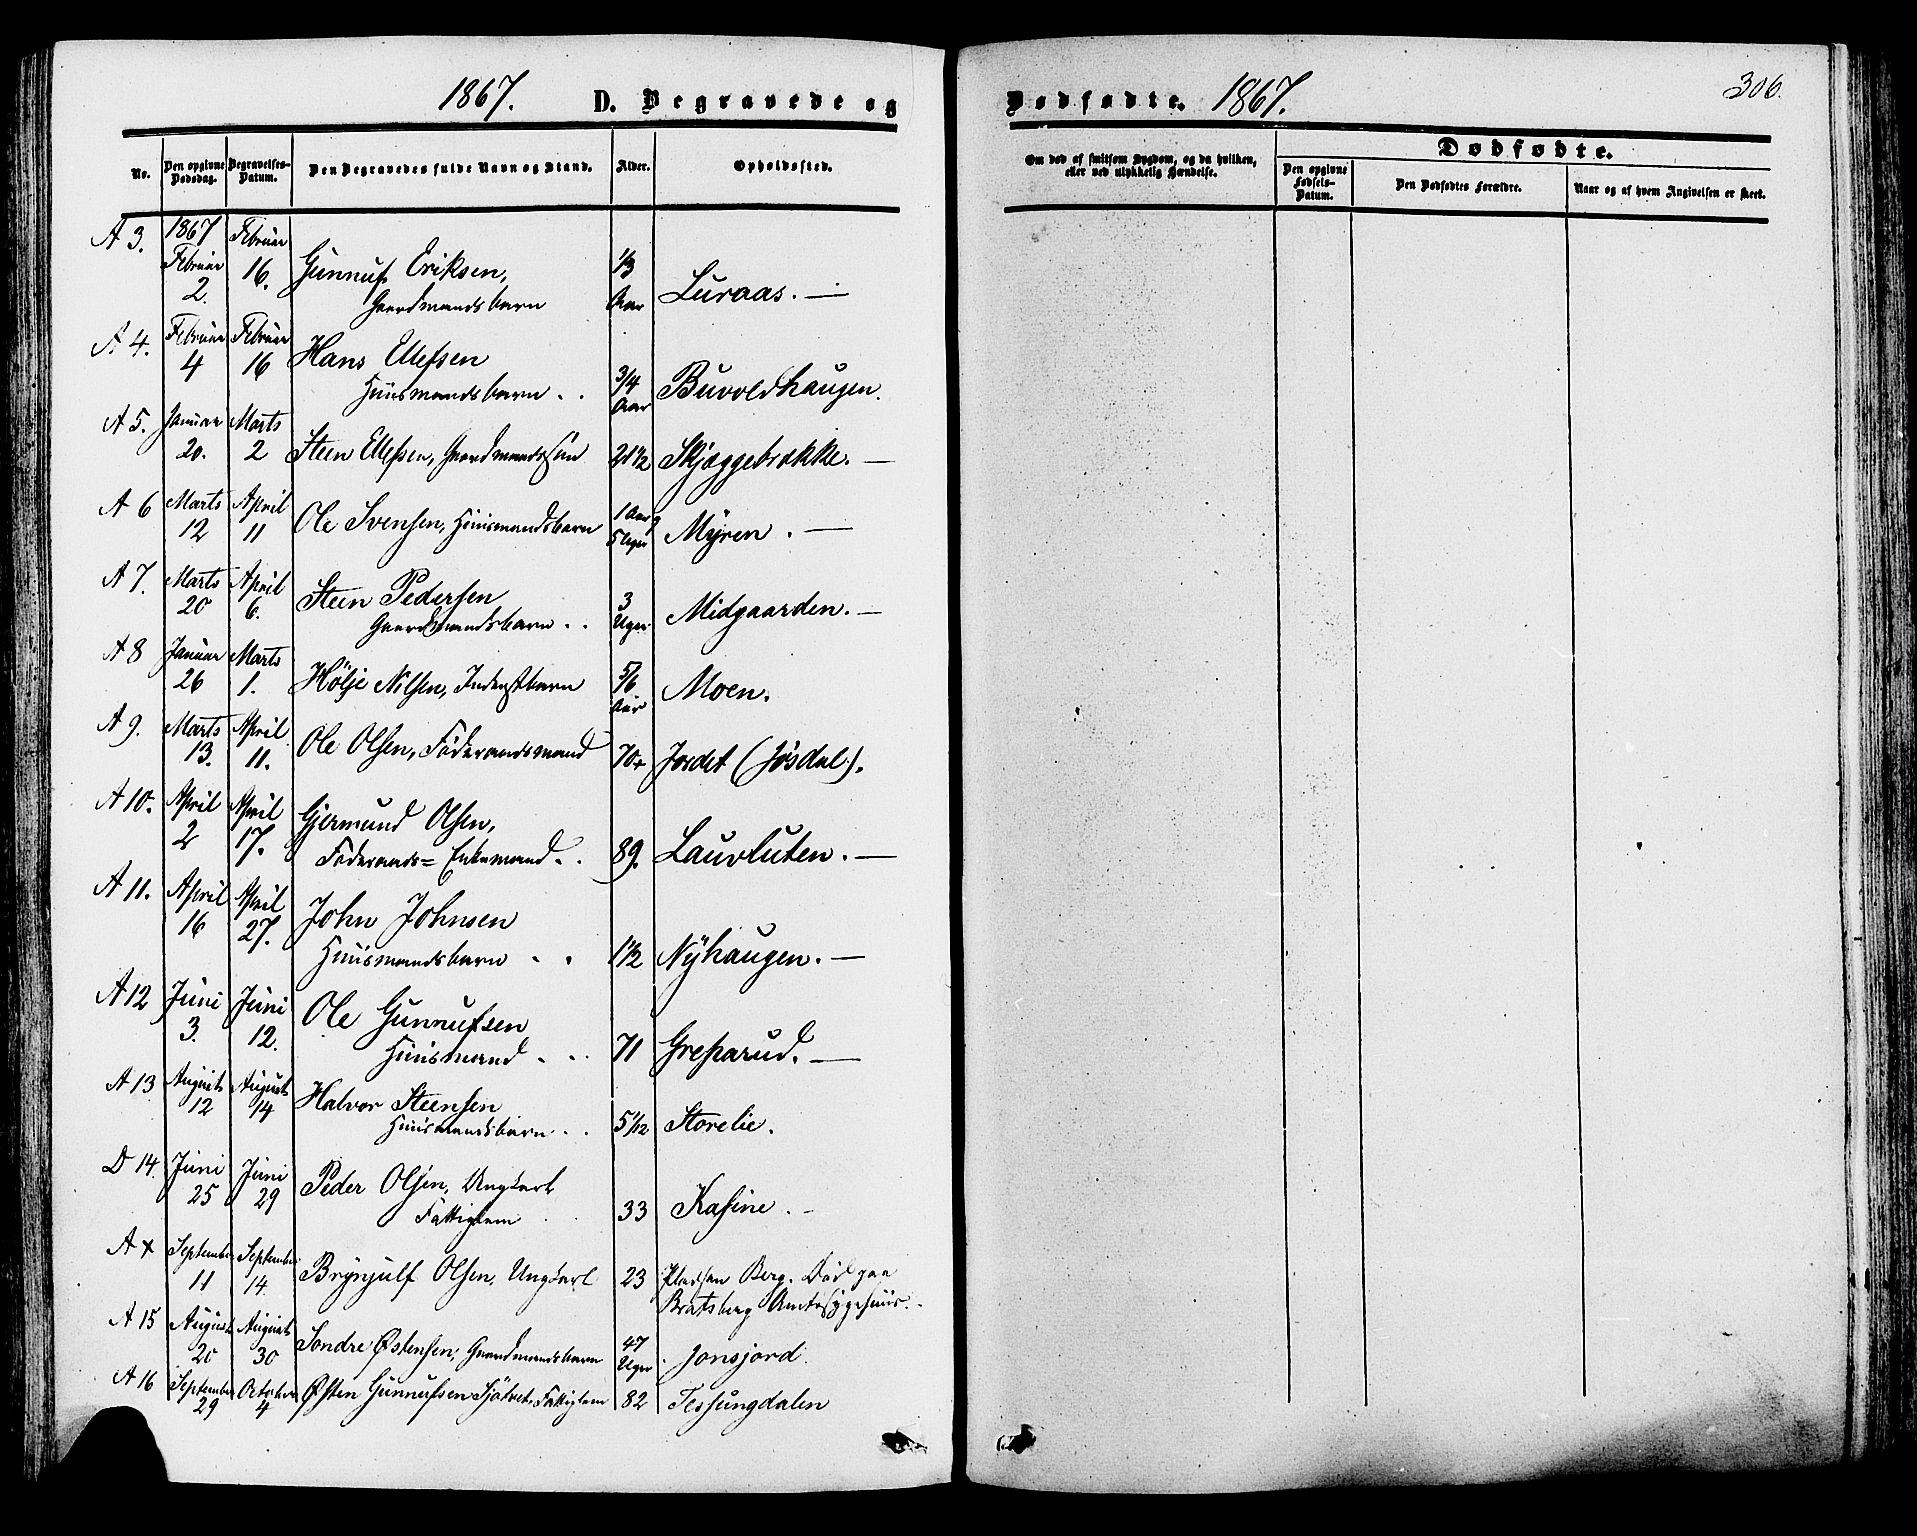 1867. D. Begravede og
No. Den opgivne Dødsdag. Begravelses-Datum. Den Begravedes fulde Navn og Stand. Alder. Opholdssted.
A 3. 1867 Februar 2. Februar 16. Gunnuf Eriksen, Gaardmandsbarn 1/3 Aar Luraas. —
A. 4. Februar 4 Februar 16 Hans Ellefsen Huusmandsbarn . . 3/4 Aar Buvoldhaugen.
A 5. Januar 20. Marts 2 Steen Ellefsen, Gaardmandssøn 21 1/2 Skjæggebrække. —
A 6 Marts 12 April 11 Ole Svensen, Huusmandsbarn 1 Aar 5 Uger Myren . —
A 7. Marts 20 April 6. Steen Pedersen Gaardmandsbarn . . 3 Uger Midgaarden. —
A 8 Januar 26 Marts 1. Hölje Nilsen, Inderstbarn 5/6 Aar Moen.
A 9. Marts 13. April 11. Ole Olsen, Föderaadsmand 70+ Jordet (Jösdal).
A 10. April 2 April 17. Gjermund Olsen, Föderaads= Enkemand . . 89. Lauvluten. —
A 11. April 16 April 27. John Johnsen Huusmandsbarn . . 1 1/2 Nÿhaugen. —
A 12 Juni 3. Juni 12. Ole Gunnufsen Huusmand . . 71 Greparud. —
A 13 August 12 August 14 Halvor Steensen Huusmandsbarn . . 5 1/12 Storelie.
D 14. Juni 25 Juni 29 Peder Olsen, Ungkarl Fattiglem 33 Kasine . -
A + September 11 September 14. Brynjulf Olsen, Ungkarl 23 Pladsen Berg. Død paa Bratsberg Amtssygehuus.
A 15 August 20 August 30 Sondre Østensen, Gaardmandsbarn 47 Uger Jonsjord.
A 16 September 29 October 4 Østen Gunnufsen Sjötveit, Fattiglem 82 Tessungdalen
Dødfødte. 1867. 306.
Om død af smitsom Sygdom, og da hvilken, eller ved ulykkelig Hændelse.
Dødfødte.
Den opgivne Fødsels-Datum. Den Dødfødtes Forældre. Naar og af hvem Angivelsen er skeet.